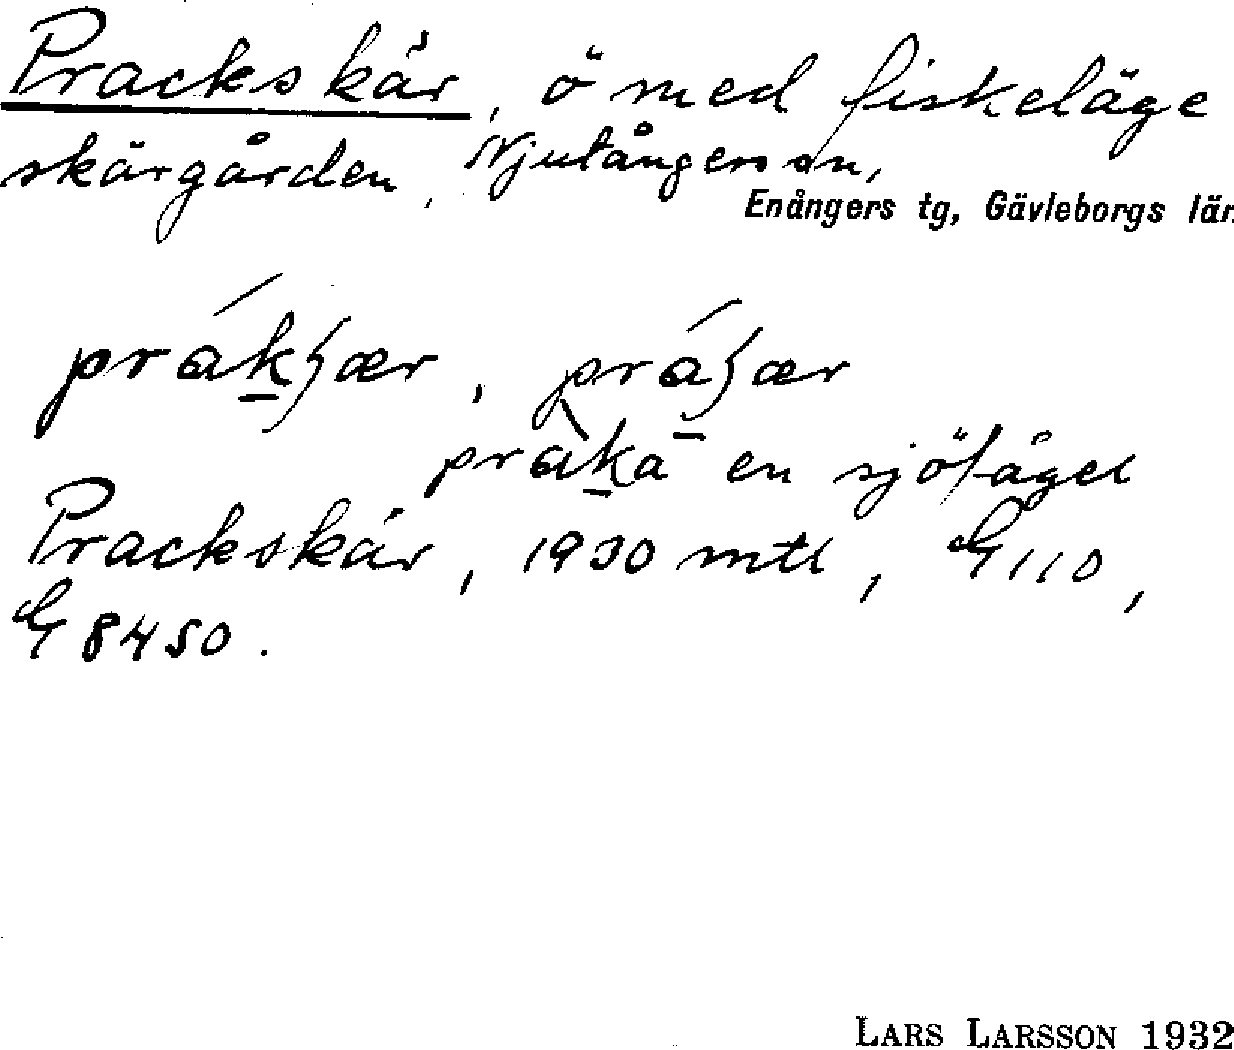 Prackskär, ö med fiskeläge
skärgården, Njutångers sn,
Enångers tg, Gävleborgs län
prákʃær, práʃær
pràka en sjöfågel
Prackskär, 1930 mtl, G 110,
G 8450.
LARS LARSSON 1932